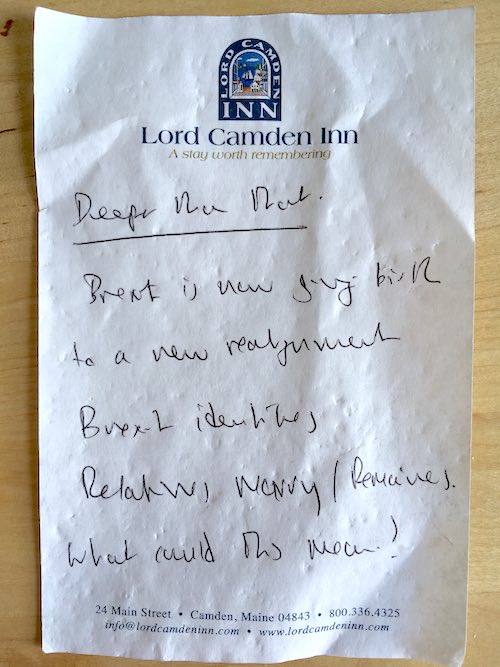 LORD CAMDEN
INN
Lord Camden Inn
A stay worth remembering
Deeper than that.
Brexit is now giving birth
to a new realignment
Brexit identities
Relatives marry / Remainers.
What could this mean?
24 Main Street • Camden, Maine 04843 • 800.336.4325
info@lordcamdeninn.com • www.lordcamdeninn.com